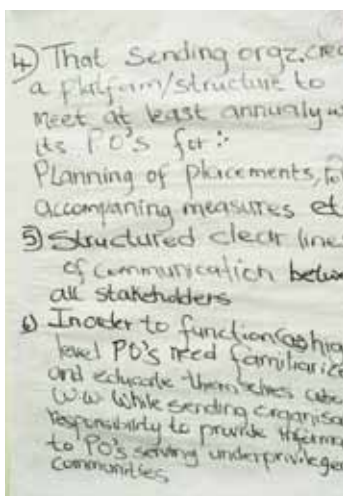 4) That Sending orgz. crea
a platform/structure to
meet at least annualy w
its PO's for :-
Planning of placements, fo
accompaning measures et
5) Structured clear line
of communication betwe
all stakeholders
6) Inorder to function (as hig
level PO's need familiarize
and educate themselves abo
W.W While sending organisa
responsibility to provide inform
to PO's serving underprivilege
Communities